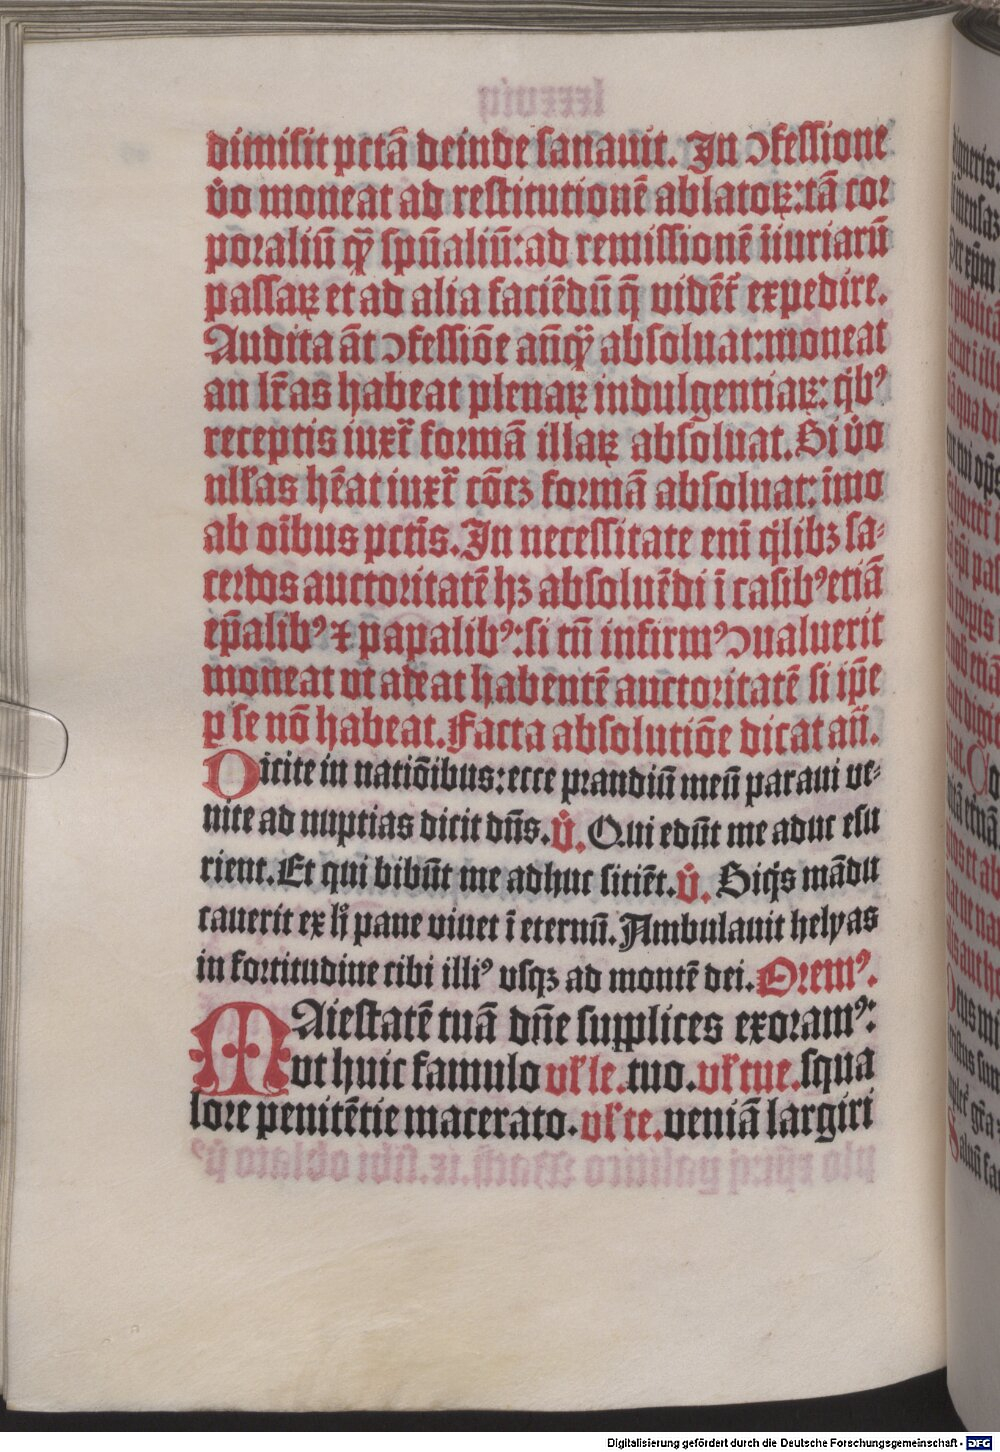 dimisit pctā deinde sanauit. In ↄfessione
v̊o moneat ad restitutionē ablatoꝝ: tā cor
poraliū qꝫ spūaliū: ad remissionē iniuriarū
passaꝝ et ad alia faciēdū q̄ vidēt᷑ expedire.
Audita āt ↄfessiōe anq̄ꝫ absoluat: moneat
an lr̄as habeat plenaꝝ indulgentiaꝝ: qͥbꝰ
receptis iuxt᷑ formā illaꝝ absoluat. Si v̊o
null᷑as hēat iuxt᷑ cōēꝫ formā absoluat: īmo
ab oībus pctīs. In necessitate enī qͥlibꝫ sa⸗
cerdos auctoritatē hꝫ absoluēdi ī casibꝰ etiā
ep̄alibꝰ ⁊ papalibꝰ: si tn̄ infirmꝰ ↄualuerit
moneat vt adeat habentē auctoritatē si ip̄e
ꝑ se nō habeat. Facta absolutiōe dicat an̄.
Dicite in natiōibus: ecce prandiū meū paraui ve⸗
nite ad nuptias dicit dn̄s. v̊. Qui edūt me aduc esu
rient. Et qui bibūt me adhuc sitiēt. v̊. Siqͥs mādu
cauerit ex hͦ pane viuet ī eternū. Ambulauit helyas
in fortitudine cibi illiꝰ vsqꝫ ad montē dei. Oremꝰ.
Maiestatē tuā dn̄e supplices exoramꝰ:
vt huic famulo vl᷑ le. tuo. vl᷑ tue. squa
lore penitētie macerato. vl᷑ te. veniā largiri
Digitalisierung gefördert durch die Deutsche Forschungsgemeinschaft - DFG